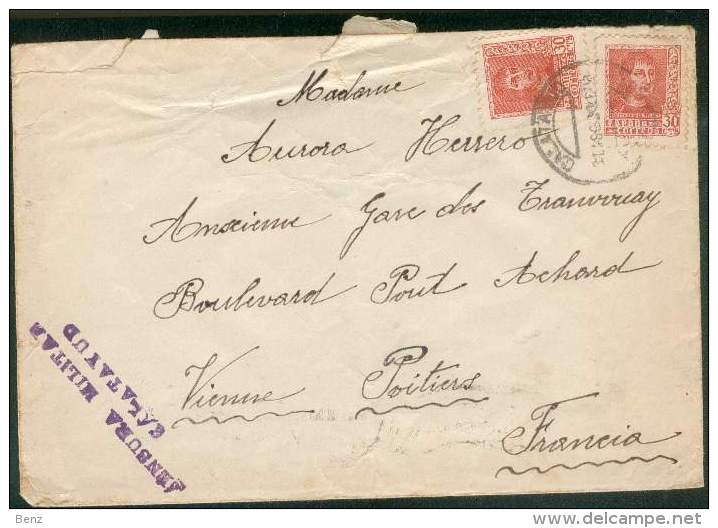 Madame
Aurora Herrero
Anxienne Gare des Tranvvuay
Boulevard Pont Achard
Vienne Poitiers
Francia
CENSURA MILITAR
CALATAYUD
30
CORREOS
30
ESPAÑA
CORREOS
Benz
delcampe.net